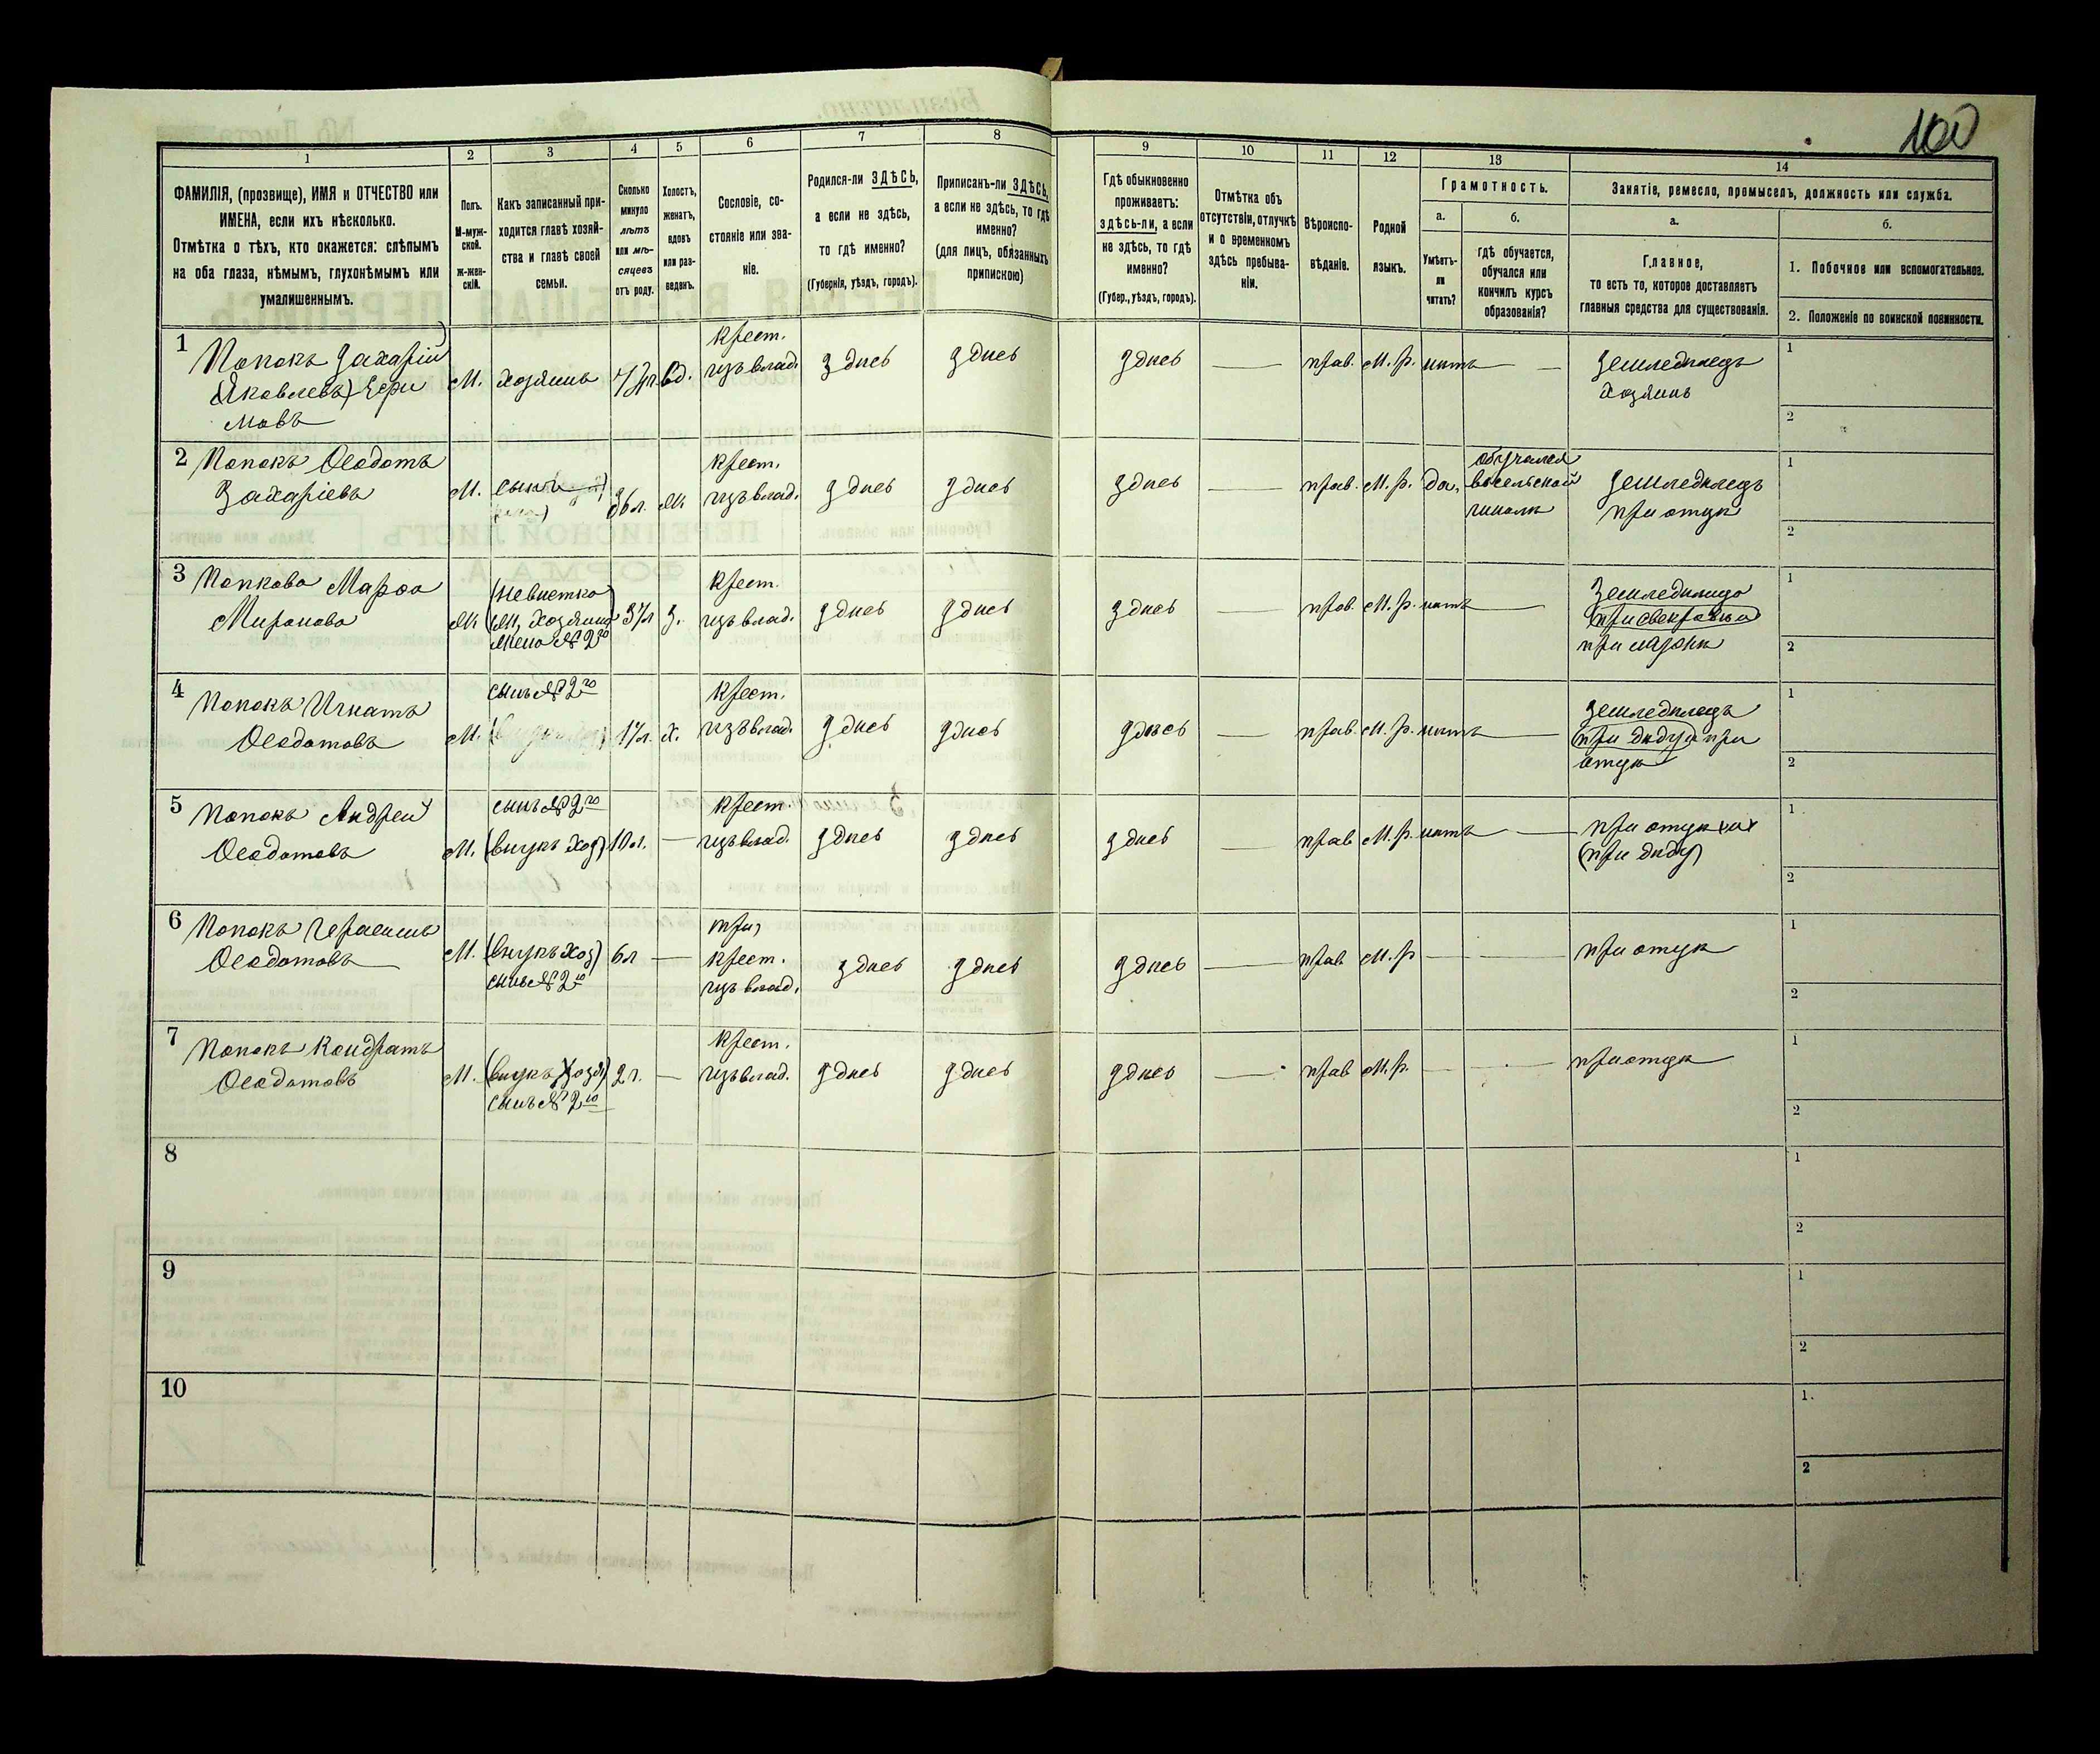 100
1
2
3
4
5
6
7
8
9
10
11
12
13
14
ФАМИЛІЯ, (прозвище), ИМЯ и ОТЧЕСТВО или
ИМЕНА, если ихъ нѣсколько.
Отмѣтка о тѣхъ, кто окажется: слѣпымъ
на оба глаза, нѣмымъ, глухонѣмымъ или
умалишеннымъ.
Полъ.
М-муж-
ской.
ж-жен-
скій.
Какъ записанный при-
ходится главѣ хозяй-
ства и главѣ своей
семьи.
Сколько
минуло
лѣтъ
или мѣ-
сяцевъ
отъ роду.
Холостъ,
женатъ,
вдовъ
или раз-
веденъ.
Сословіе, со-
стояніе или зва-
ніе.
Родился-ли ЗДѢСЬ,
а если не здѣсь,
то гдѣ именно?
(Губернія, уѣздъ, городъ).
Приписанъ-ли ЗДѢСЬ,
а если не здѣсь, то гдѣ
именно?
(для лицъ, обязанныхъ
припискою)
Гдѣ обыкновенно
проживаетъ:
ЗДѢСЬ-ЛИ, а если
не здѣсь, то гдѣ
именно?
(Губер., уѣздъ, городъ).
Отмѣтка объ
отсутствіи, отлучкѣ
и о временномъ
здѣсь пребыва-
ніи.
Вѣроиспо-
вѣданіе.
Родной
языкъ.
Грамотность.
а.
Умѣетъ-
ли
читать?
б.
гдѣ обучается,
обучался или
кончилъ курсъ
образованія?
Занятіе, ремесло, промыселъ, должность или служба.
а.
Главное,
то есть то, которое доставляетъ
главныя средства для существованія.
б.
1. Побочное или вспомогательное.
2. Положеніе по воинской повинности.
1
Попокъ Захарій
(Яковлевъ) Ефи
мовъ
М.
хозяинъ
вд.
Крест.
изъ влад.
здись
здись
здись
прав.
М. р.
нитъ
Земледилецъ
Хозяинъ
1
2
2
Попокъ Ѳеодотъ
Захаріевъ
М.
сынъ
36 л.
ж.
Крест.
изъ влад.
здись
здись
здись
прав.
М. р.
да,
обучался
въ сельской
школи
Земледилецъ
при отци
1
2
3
Попкова Марѳа
Миронова
Ж
(невистка
жена №2го
37 л
з.
Крест.
изъ влад.
здись
здись
здись
прав.
М. р.
нитъ
Земледилица
при мужи
1
2
4
Попокъ Игнатъ
Ѳеодотовъ
М.
сынъ №2го
17 л.
х.
Крест.
изъ влад.
здись
здись
здись
прав.
М. р.
нитъ
Земледилецъ
(при диду) при
отци
1
2
5
Попокъ Андрей
Ѳеодотовъ
М.
сынъ №2го
(внукъ хоз)
10 л.
Крест.
изъ влад.
здись
здись
здись
прав
М. р.
нитъ
при отци
(при диду)
1
2
6
Попокъ Герасимъ
Ѳеодотовъ
М.
(внукъ хоз)
сынъ №2го
6 л
Крест.
изъ влад.
здись
здись
здись
прав
М. р
при отци
1
2
7
Попокъ Кондратъ
Ѳеодотовъ
М.
(внукъ хозя)
сынъ №2го
2 г.
Крест.
изъ влад.
здись
здись
здись
прав
М. р.
при отци
1
2
8
1
2
9
1
2
10
1.
2